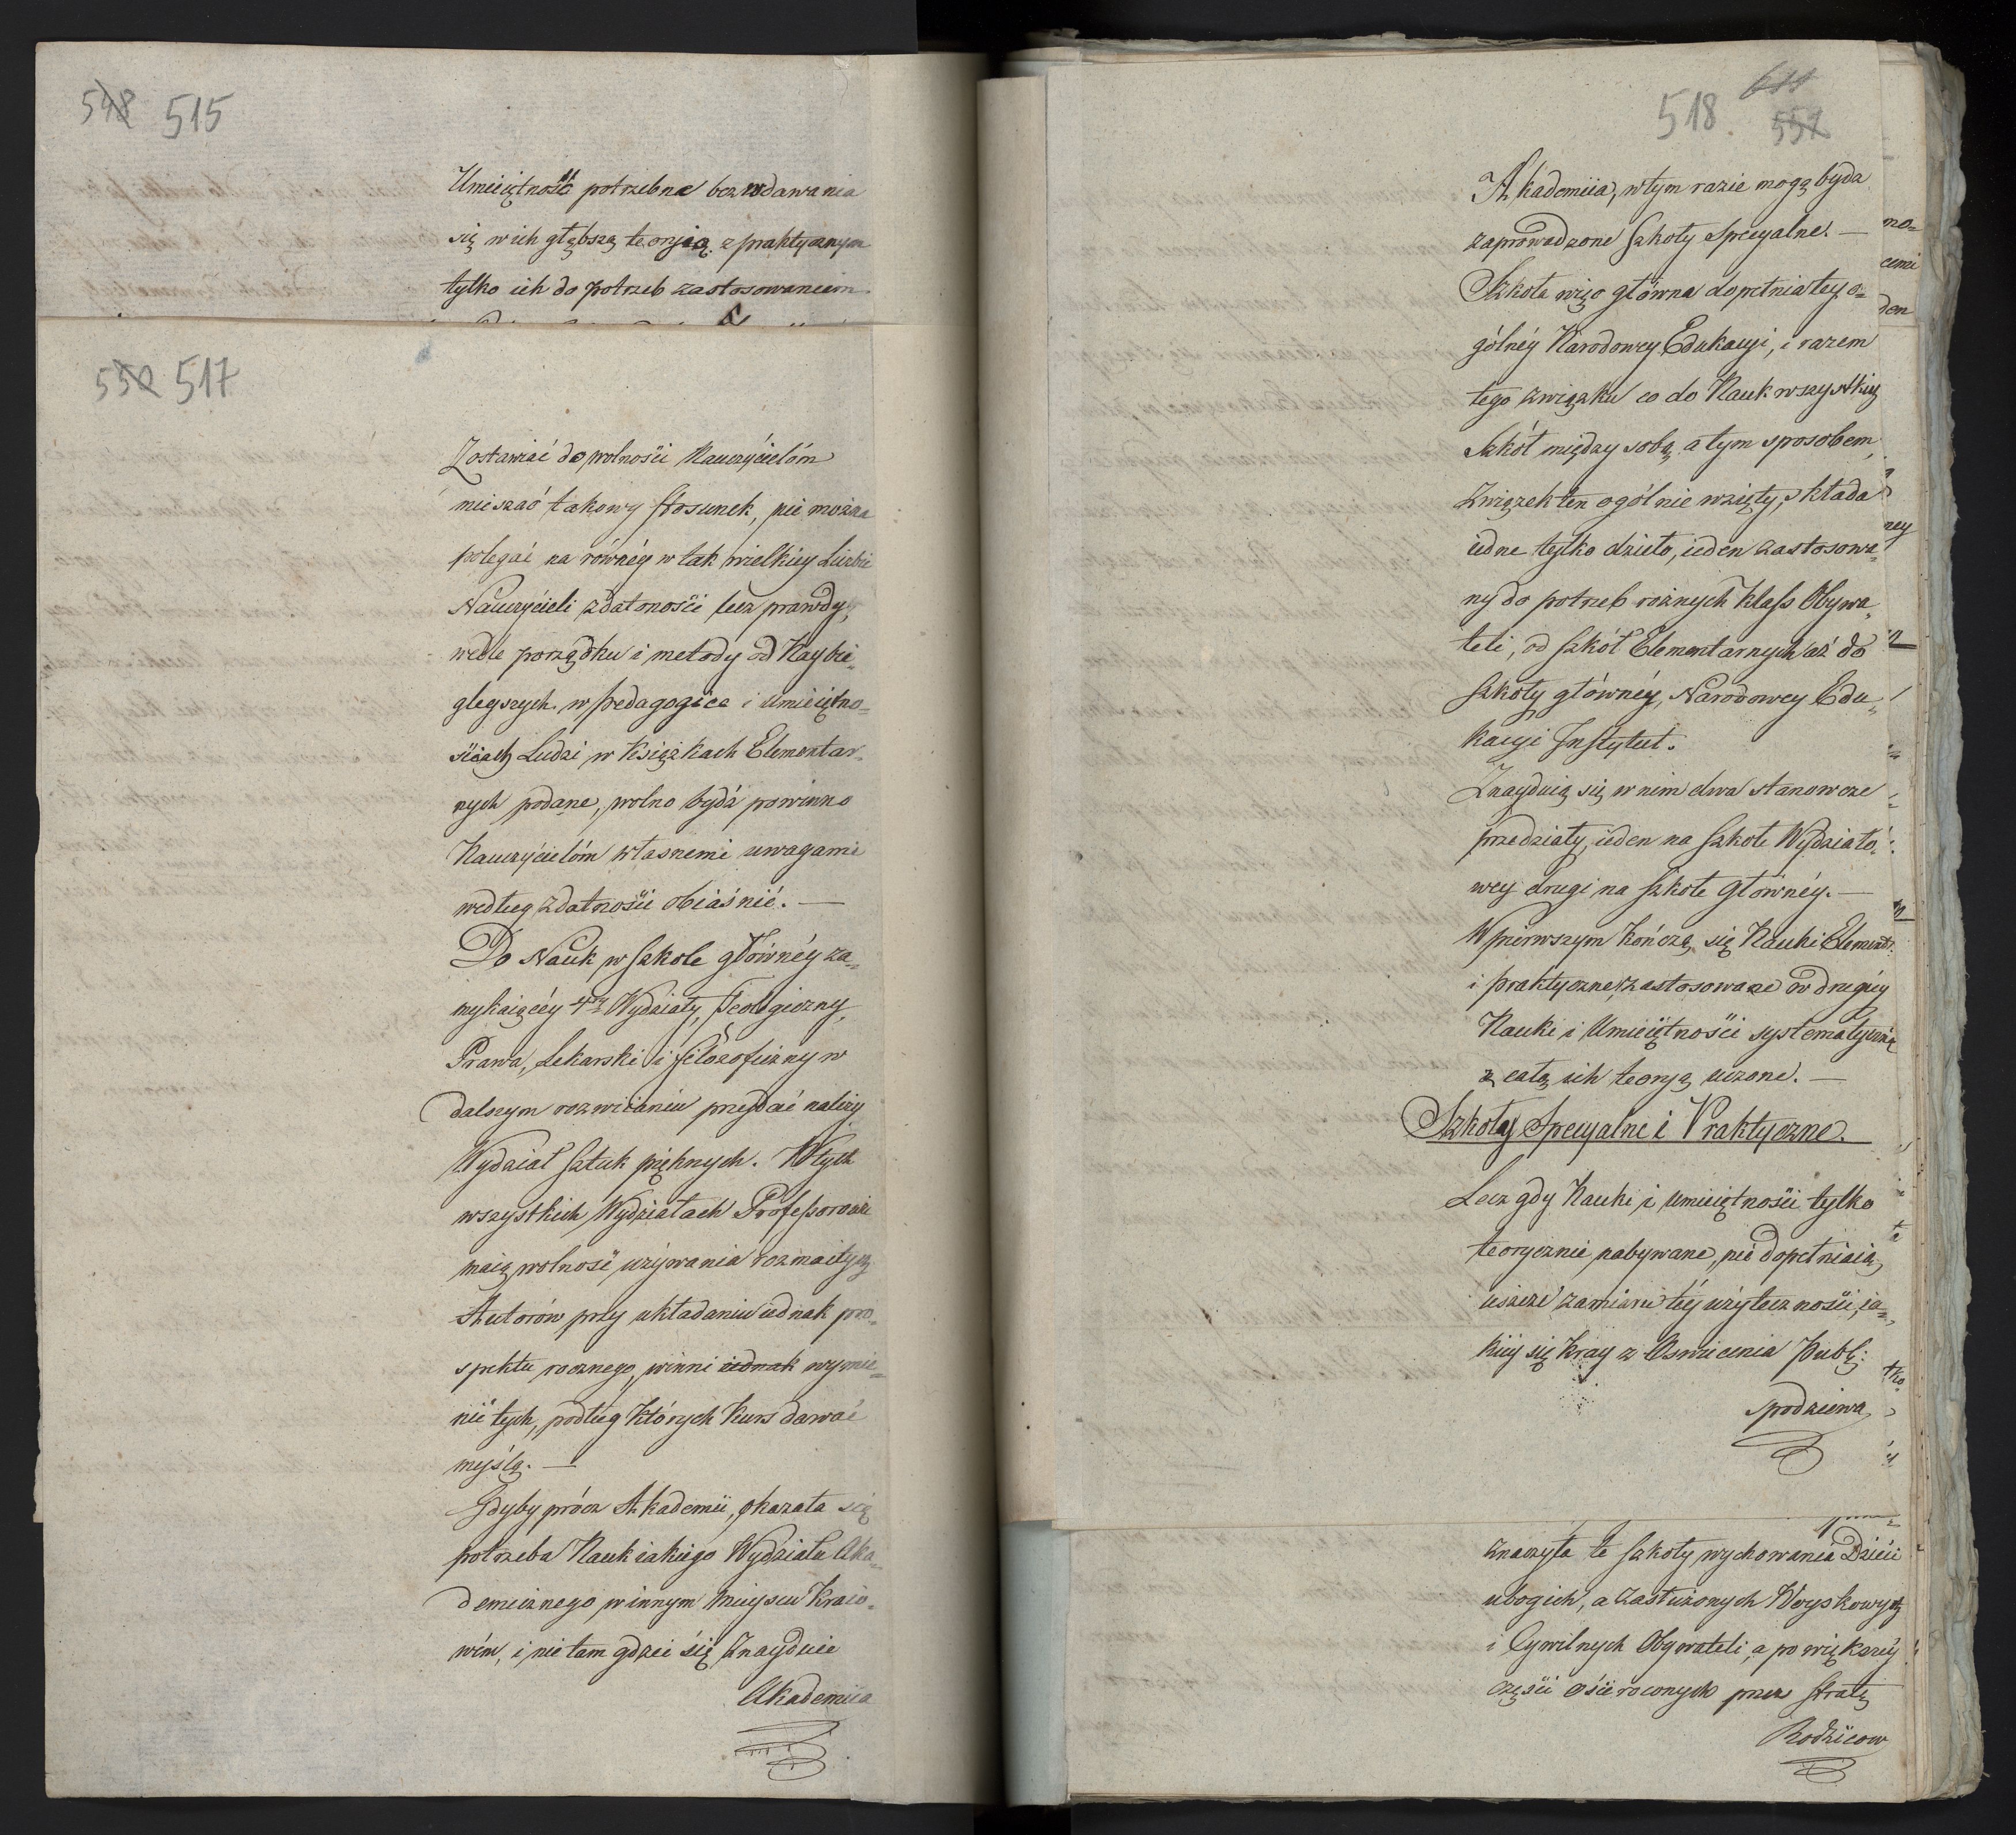 548 515
Umieiętność potrzebne bez wdawania
się w ich głębszą teorją z praktycznym
tylko ich do potrzeb zastosowaniem
552 517
Zostawiać do wolności Nauczyćielóm
mieszać takowy stosunek, nie można
polegać na równéy w tak wielkiey Liczbie
Nauczyćieli zdatności lecz prawdy,
wedle porządku i metody od Naybie„
gleyszych w pedagogice i umieiętno„
ściach Ludzi w Książkach Elementar„
nych podane, wolno bydź powinno
Nauczyćielóm własnemi uwagami
według zdatności obiaśnić. —
Do Nauk w szkole głównéy za„
mykaiącéy 4ry Wydziały, Teologiczny,
Prawa, Lekarski i filozoficzny w
dalszym rozwiianiu przydać należy
Wydział sztuk pięknych. W tych
wszystkich Wydziałach Professorowie
maią wolność używania rozmaitych
Autorów przy układaniu iednak pro„
spektu rocznego, winni iednak wymie„
nić tych, podług których Kurs dawać
myślą. —
Gdyby prócz Akademii, okazała się
potrzeba Nauk iakiego Wydziału Aka„
demicznego w innym mieyscu Kraio„
wém, i nie tam gdzie się znayduie
Akademiia
518. 611 552
Akademiia, w tym razie mogą bydź
zaprowadzone szkoły specyalne. —
Szkoła więc główna dopełnia tey o„
gólnéy Narodowey Edukacyi, i razem
tego związku co do Nauk wszystkich
Szkół między sobą, a tym sposobem,
związek ten ogólnie wzięty, składa
iedne tylko dzieło, ieden zastosowa„
ny do potrzeb rożnych Klass Obywa„
teli, od szkół Elementarnych aż do
szkoły głównéy, Narodowey Edu„
kacyi Instytut.
Znayduią się w nim dwa stanowcze
przedziały, ieden na szkole Wydziało„
wey drugi na szkole głównéy. —
W pierwszym kończą się Nauki Element:
i praktyczne, zastosowane w drugiéy
Nauki i Umieiętności systematycznie
z całą ich teorją uczone. —
Szkoły Specyalne i Praktyczne.
Lecz gdy Nauki i umieiętności tylko
teorycznie nabywane, nie dopełniaią
ieszcze zamiaru téy użyteczności, ia„
kiéy się Kray z Oświecenia Publ:
spodziewa
znaczyła te szkoły wychowania Dzieci
ubogich, a zasłużonych Woyskowych
i Cywilnych Obywateli, a po większéy
części ośieroconych przez stratę
Rodźicow